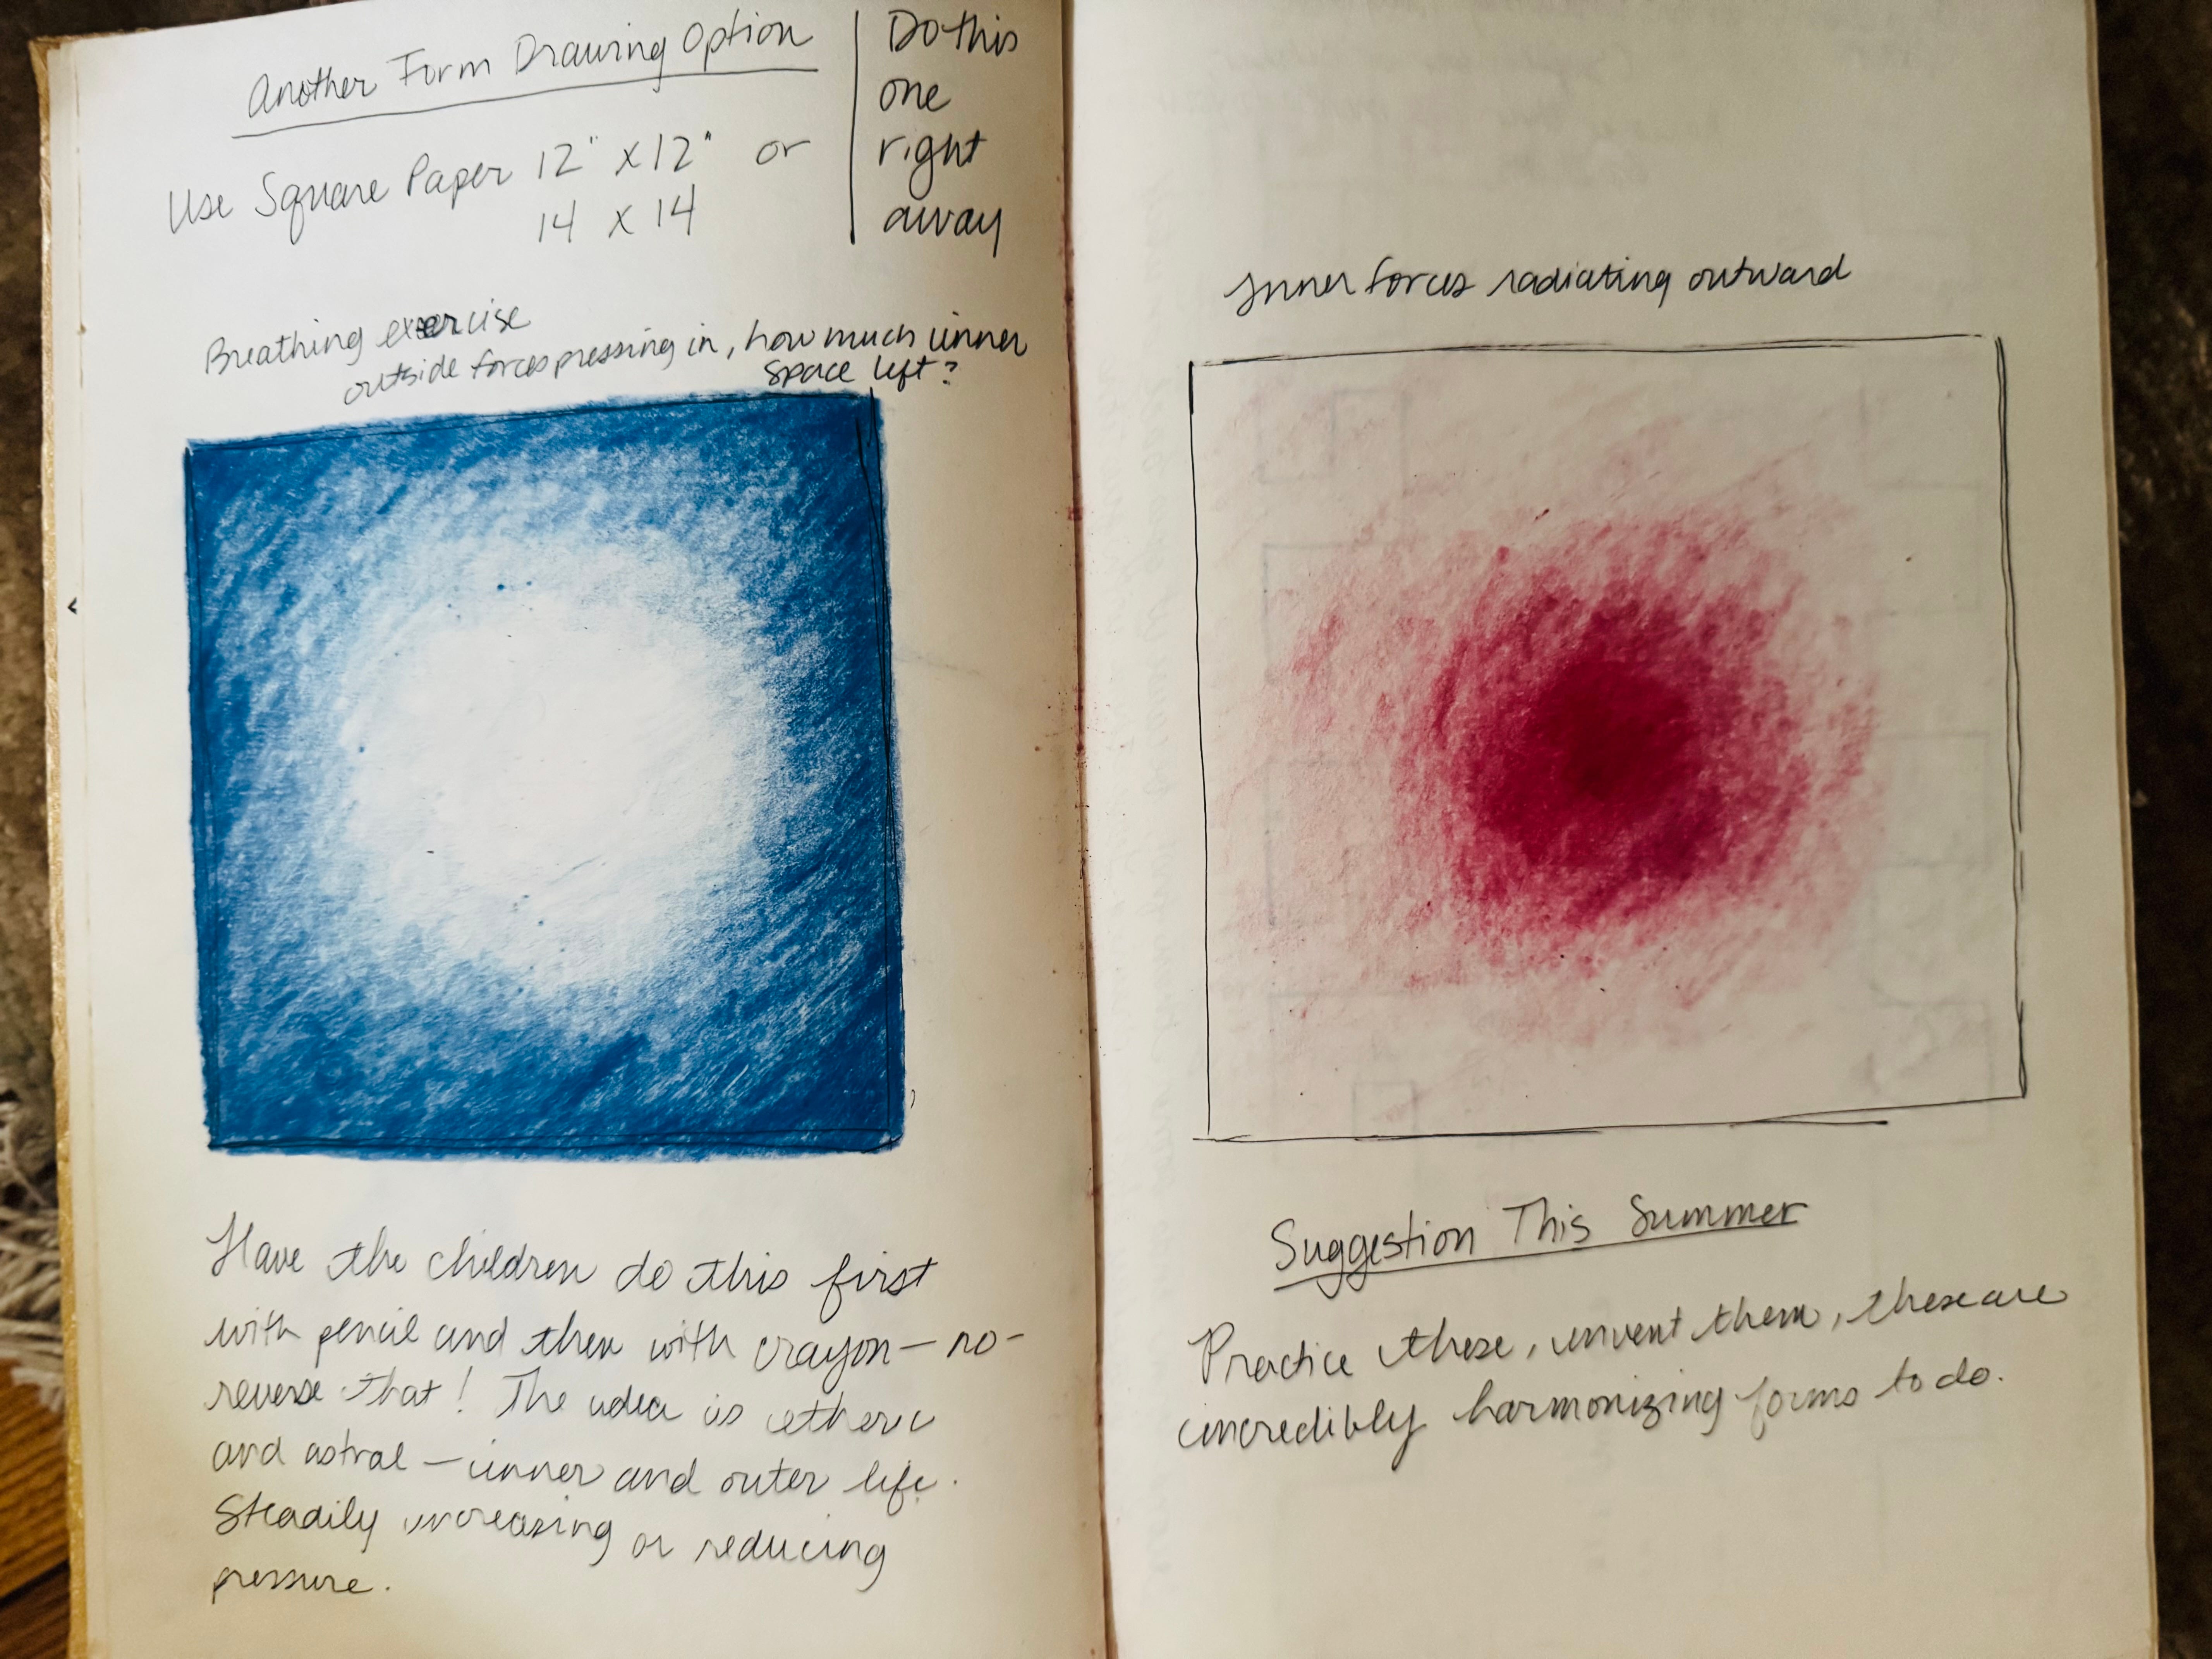 Another Form Drawing Option
Use Square Paper 12" x 12" or
14 x 14
Do this
one
right
away
Breathing exercise
outside forces pressing in, how much inner
space left?
Have the children do this first
with pencil and then with crayon – no –
reverse that! The idea is etheric
and astral – inner and outer life.
Steadily increasing or reducing
pressure.
Inner forces radiating outward
Suggestion This Summer
Practice these, invent them, these are
incredibly harmonizing forms to do.